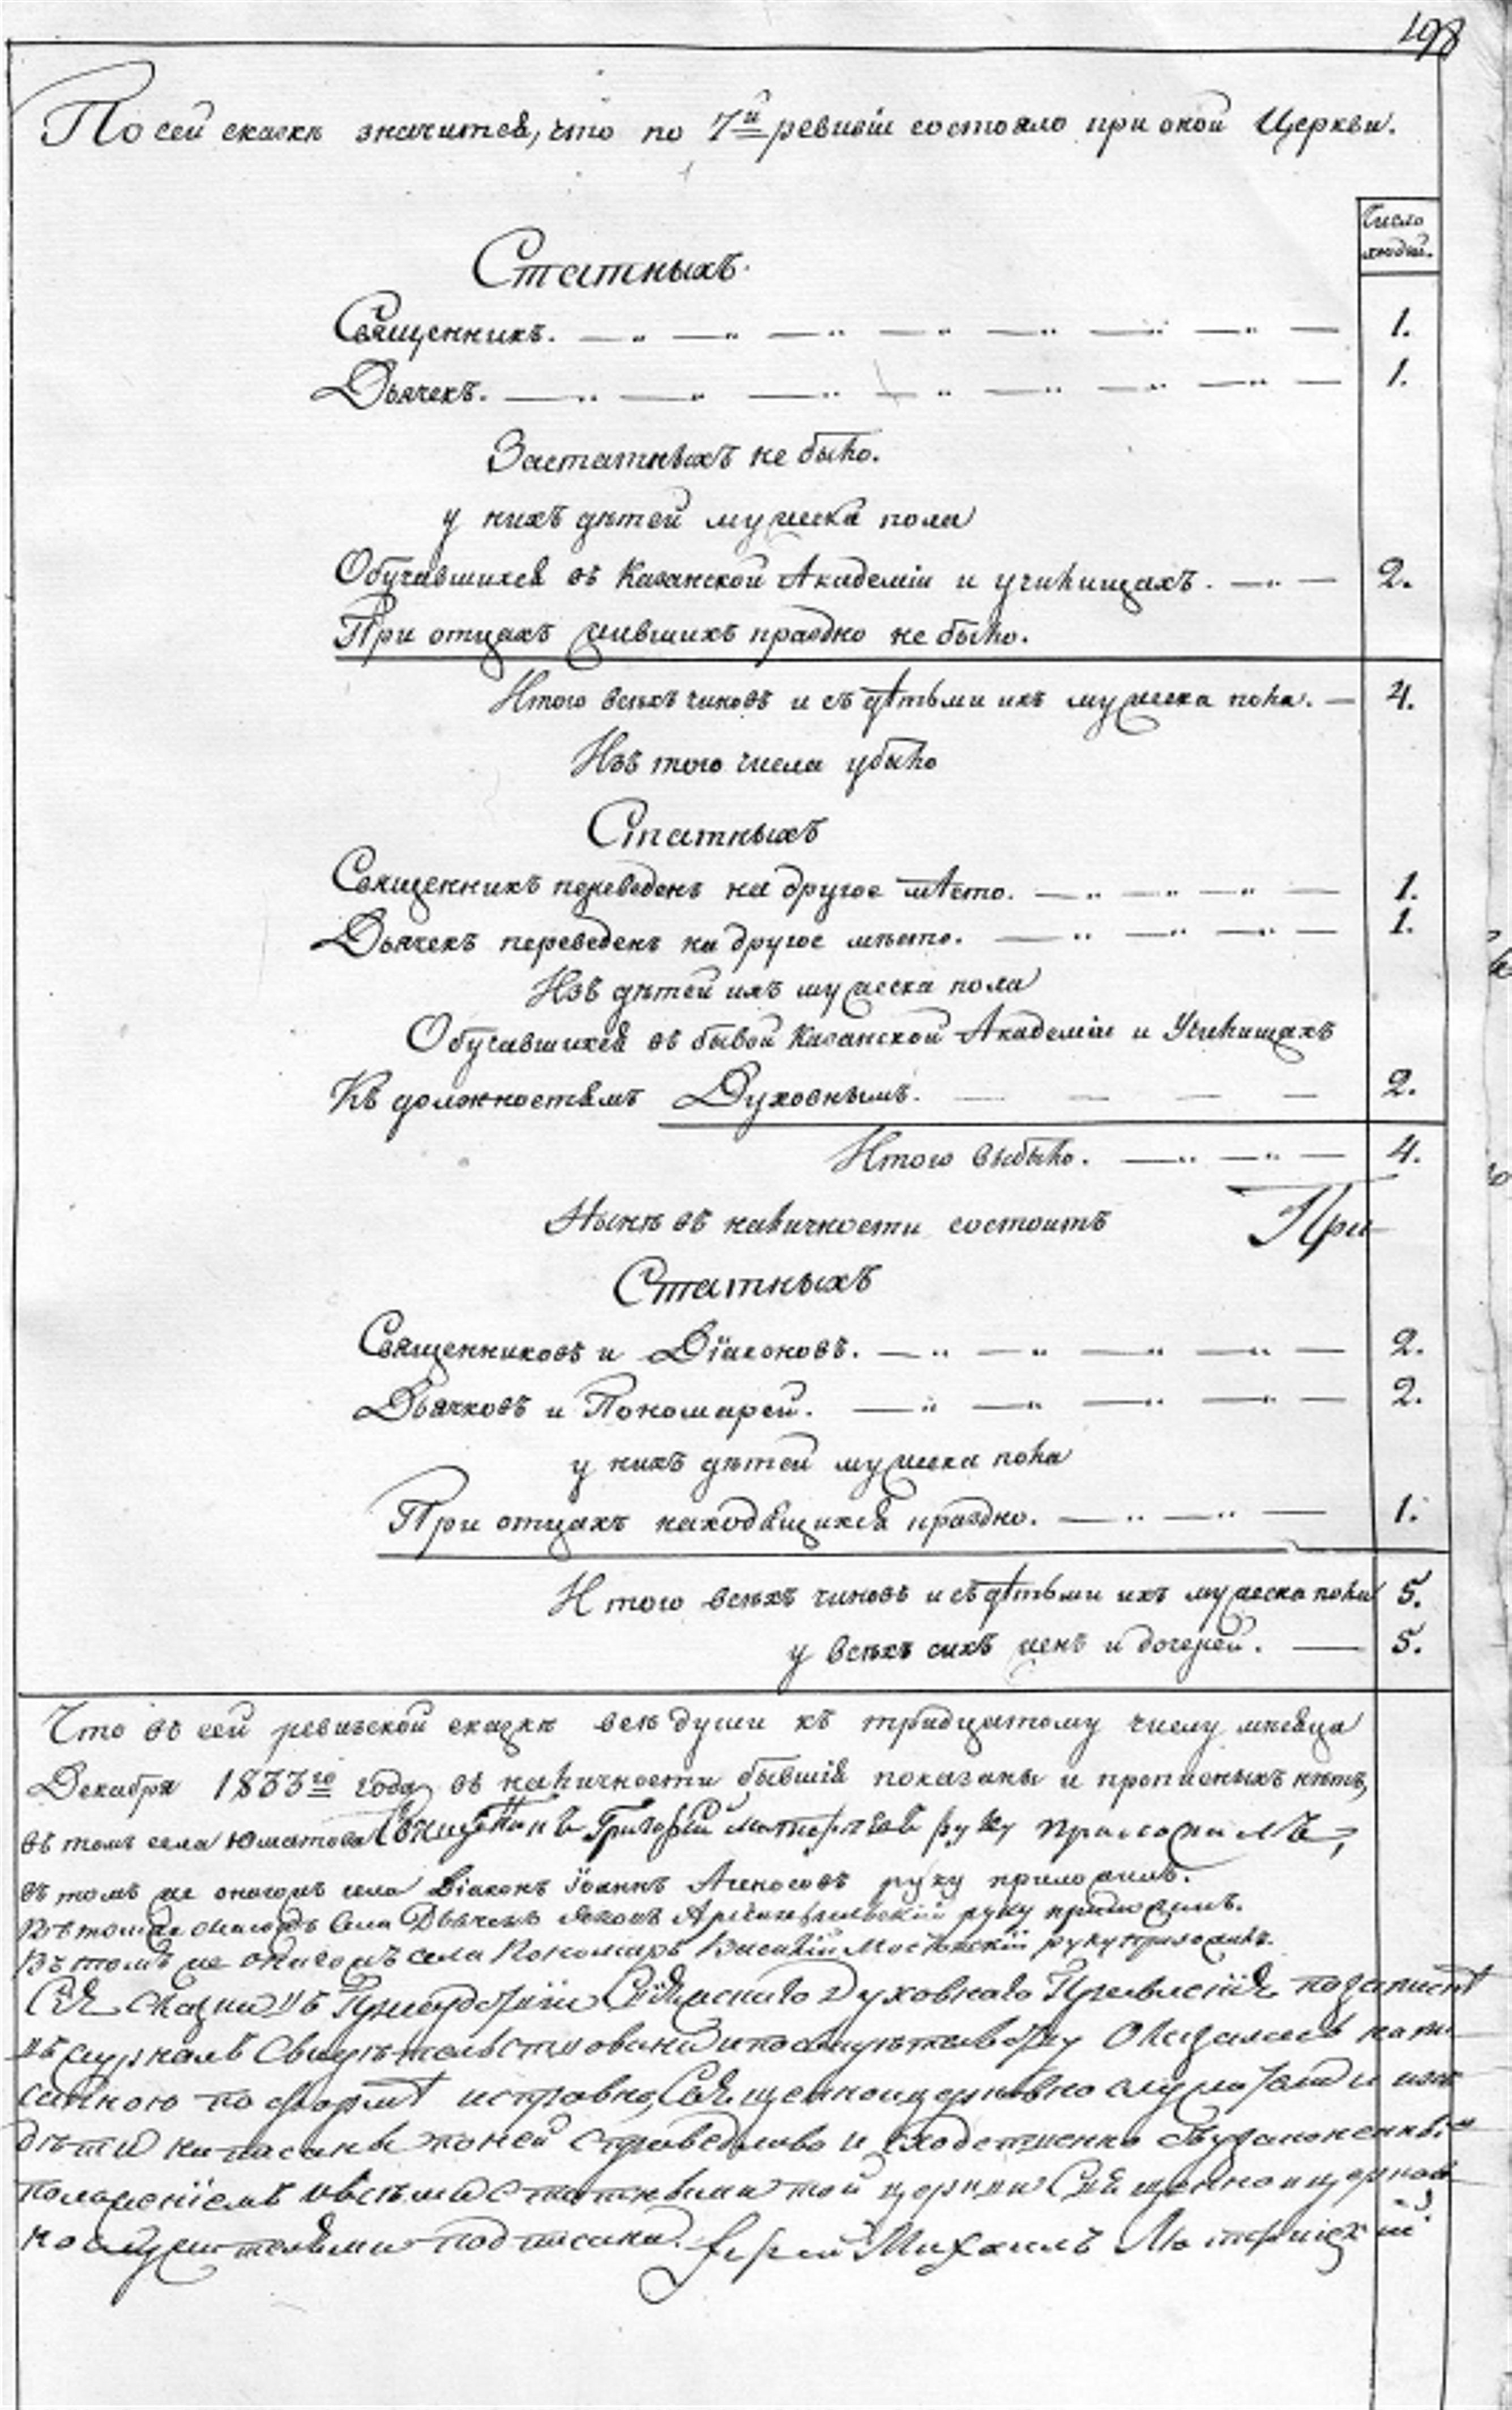 198
По сей сказкѣ значится, что по 7й ревизіи состояло при оной Церкви.
Число людей.
Статныхъ.
Священникъ. 1.
Дьячекъ. 1.
Застатныхъ не было.
у нихъ дѣтей мужеска пола
Обучавшихся въ Казанской Академіи и училищахъ. 2.
При отцахъ жившихъ праздно не было.
Итого всѣхъ чиновъ и съ дѣтьми ихъ мужеска пола. 4.
Изъ того числа убыло
Статныхъ
Священникъ переведенъ на другое мѣсто. 1.
Дьячекъ переведенъ на другое мѣсто. 1.
Изъ дѣтей ихъ мужеска пола
Обучавшихся въ бывой Казанской Академіи и Училищахъ
Къ должностямъ Духовнымъ. 2.
Итого выбыло. 4.
Нынѣ въ наличности состоитъ При
Статныхъ
Священниковъ и Діаконовъ. 2.
Дьячковъ и Пономарей. 2.
у нихъ дѣтей мужеска пола
При отцахъ находящихся праздно. 1.
Итого всѣхъ чиновъ и съ дѣтьми ихъ мужеска пола 5.
у всѣхъ сихъ женъ и дочерей. 5.
Что въ сей ревизской сказкѣ всѣ души къ тридцатому числу мѣсяца
Декабря 1833го года въ наличности бывшія показаны и прописныхъ нѣтъ,
въ томъ села Юматова Священникъ Григорій руку приложилъ,
въ томъ же онагожъ села Діаконъ Іоаннъ руку приложилъ.
Въ томже онагожъ села Дьячекъ Яковъ Архангельскій руку приложилъ.
Въ томъ же онагожъ села Пономарь Василій Московскій руку приложилъ.
Сія сказка въ Свіяжскаго Духовнаго Правленія по запискѣ
въ журналъ свидѣтельствована и по оказалась напи-
санною по формѣ исправно, Священноцерковнослужители и ихъ
дѣти написаны по ней справедливо и сходственно съ узаконеннымъ
положеніемъ и всѣми статными той церкви Священно и церков-
нослужителями подписана. Іерей Михаилъ